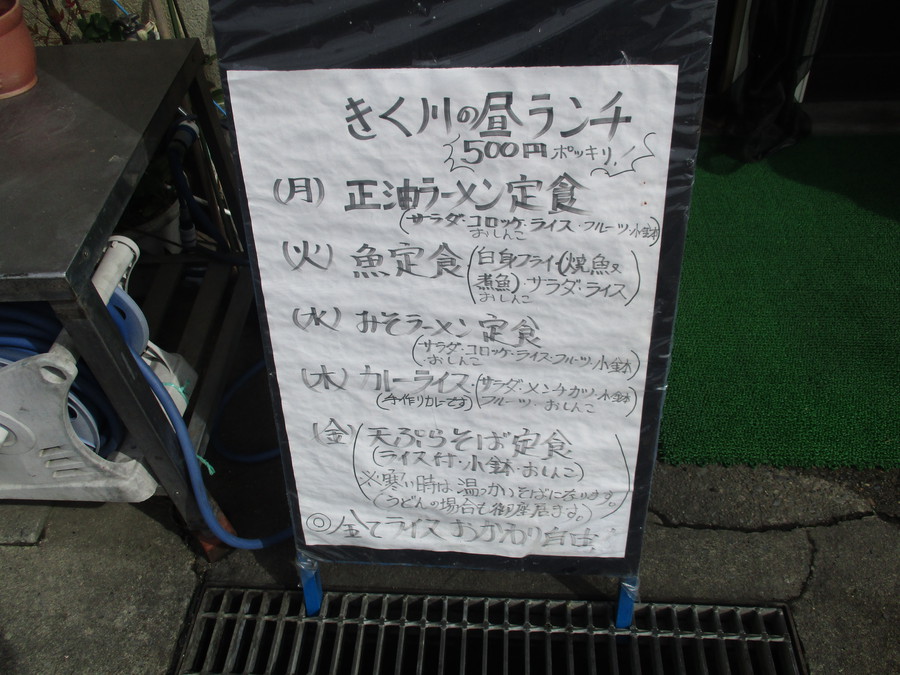 きく川の昼ランチ
500円ポッキリ!
(月) 正油ラーメン定食
(サラダ・コロッケ・ライス・フルーツ・小鉢
おしんこ
(火) 魚定食(白身フライ(焼魚又
煮魚)・サラダ・ライス)
おしんこ
(水) みそラーメン定食
(サラダ・コロッケ・ライス・フルーツ・小鉢
・おしんこ)
(木) カレーライス・(サラダ・メンチカツ・小鉢
(手作りカレーです) フルーツ・おしんこ)
(金) 天ぷらそば定食
(ライス付・小鉢・おしんこ)
※寒い時は温っかいそばになります。
(うどんの場合も御座居ます。)
◎全てライスおかわり自由